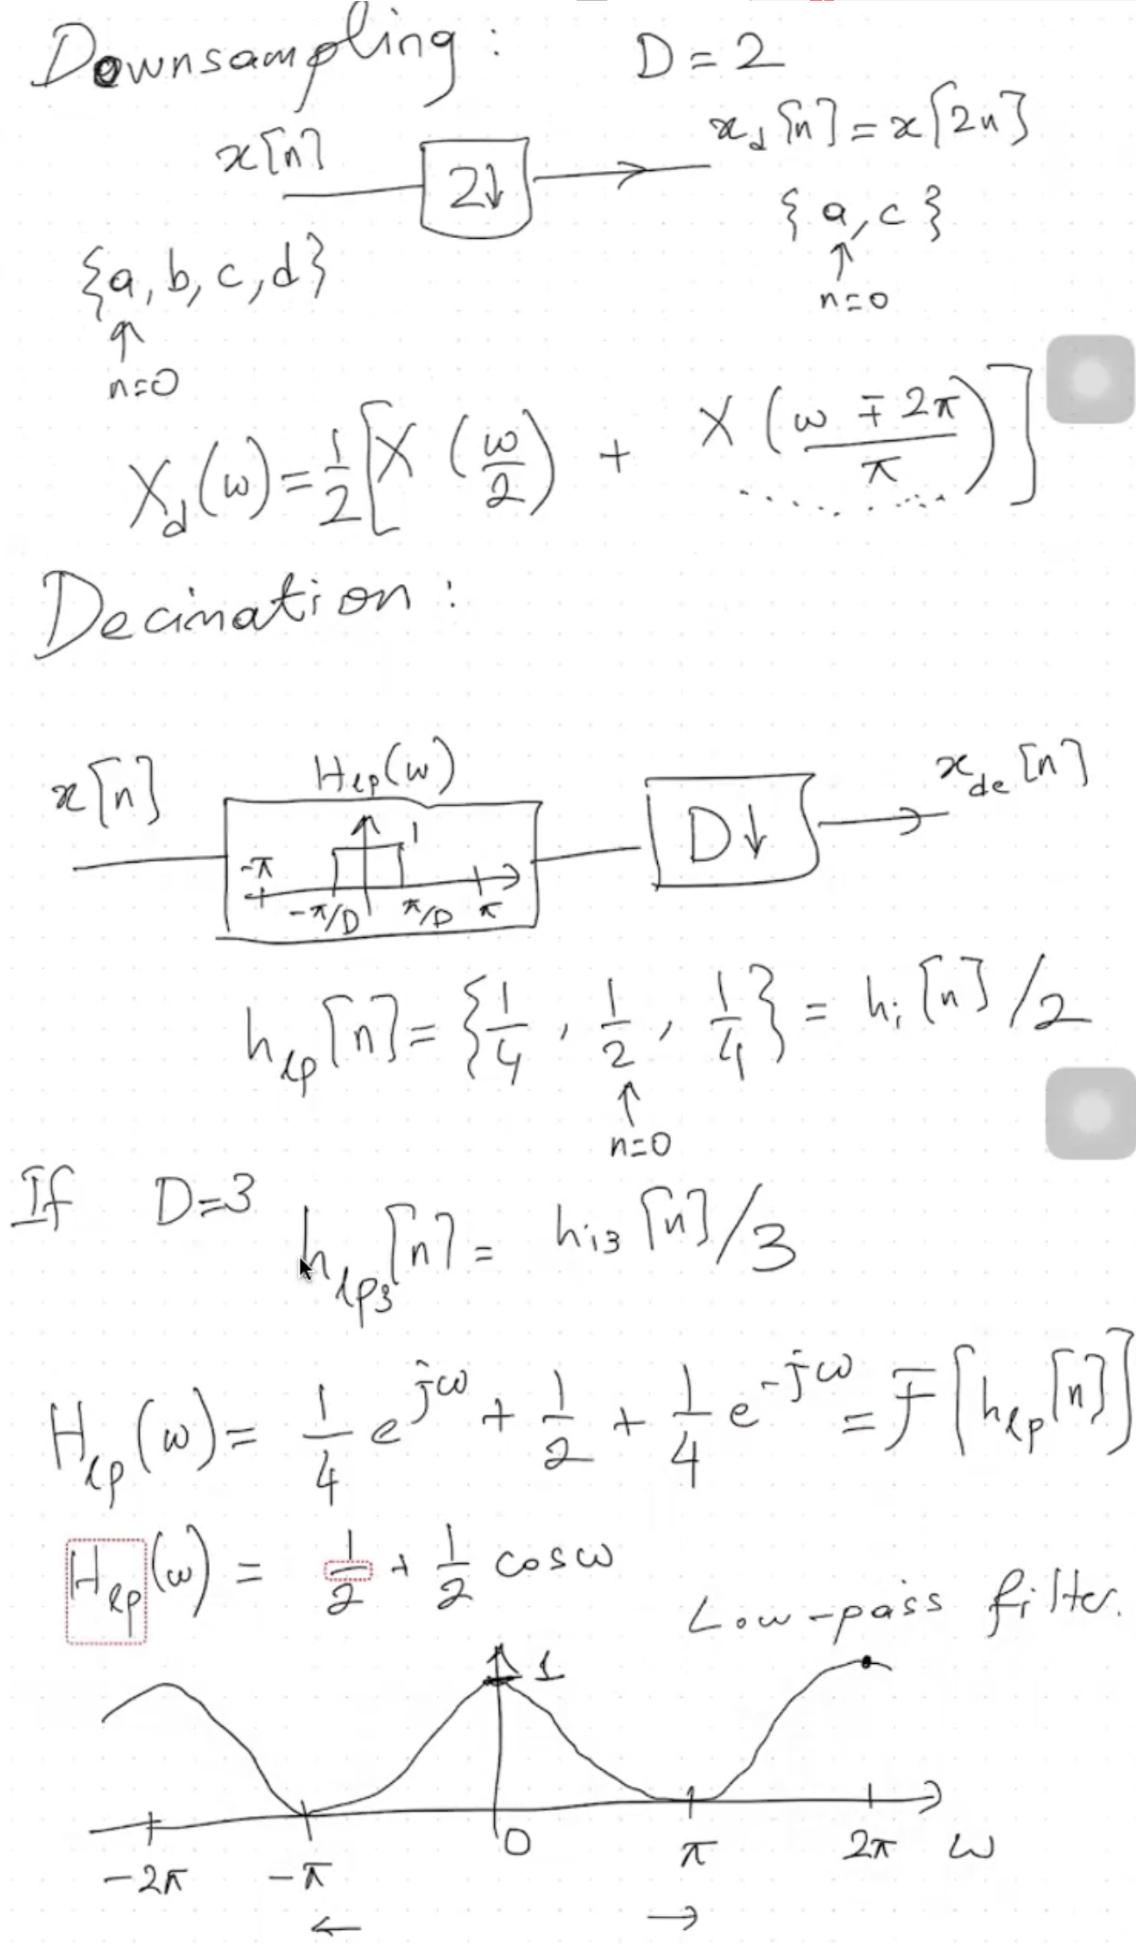 Downsampling : D = 2
x[n] 2↓ x_d[n] = x[2n]
{a, b, c, d} {a, c}
↑ ↑
n=0 n=0
X_d(ω) = 1/2 [X(ω/2) + X((ω ∓ 2π)/π)]
Decimation :
x[n] H_lp(ω) D↓ x_de[n]
1
-π -π/D π/D π
h_lp[n] = {1/4, 1/2, 1/4} = h_i[n]/2
↑
n=0
If D=3 h_lp3[n] = h_i3[n]/3
H_lp(ω) = 1/4 e^{jω} + 1/2 + 1/4 e^{-jω} = F[h_lp[n]]
H_lp(ω) = 1/2 + 1/2 cosω
Low-pass filter.
1
-2π -π 0 π 2π ω
← →